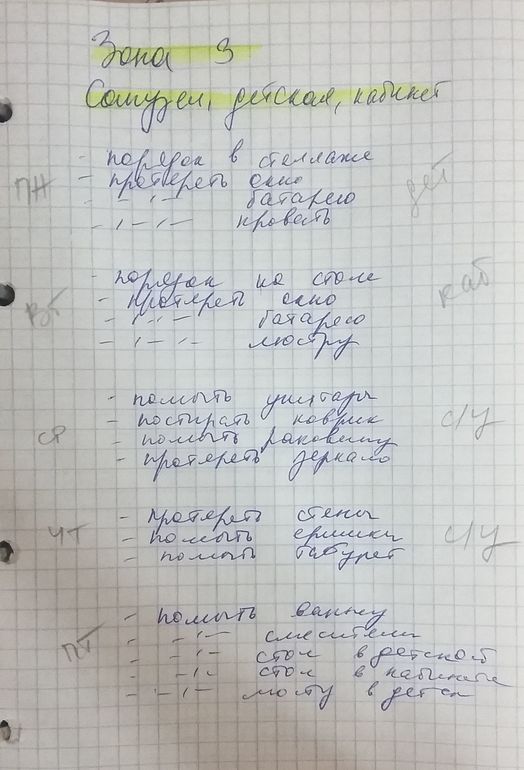 Зона 3
Санузел, детская, кабинет
ПН
дет
- порядок в стеллаже
- протереть окно
- -,- батарею
- -,-,- кровать
ВТ
каб
- порядок на столе
- протереть окно
- -,-,- батарею
- -,-,- люстру
СР
с/у
- помыть унитазы
- постирать коврик
- помыть раковину
- протереть зеркало
ЧТ
с/у
- протереть стены
- помыть ершики
- помыть табурет
ПТ
- помыть ванну
- -,- смесители
- -,- стол в детской
- -,- стол в кабинете
- -,- в детск